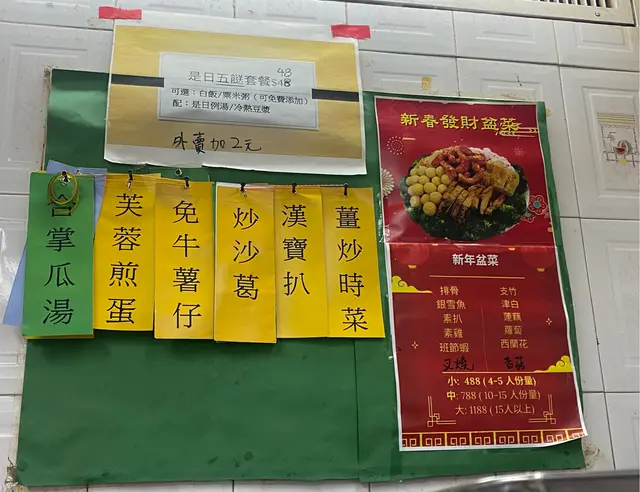 是日五餸套餐$48
48
可選：白飯/粟米粥（可免費添加）
配：是日例湯/冷熱豆漿
外賣加2元
合掌瓜湯
芙蓉煎蛋
免牛薯仔
炒沙葛
漢寶扒
薑炒時菜
新春發財盆菜
新年盆菜
排骨
銀雪魚
素扒
素雞
班節蝦
叉燒
支竹
津白
蓮藕
蘿蔔
西蘭花
香菇
小: 488 ( 4-5 人份量)
中: 788 ( 10-15 人份量)
大: 1188 ( 15人以上)